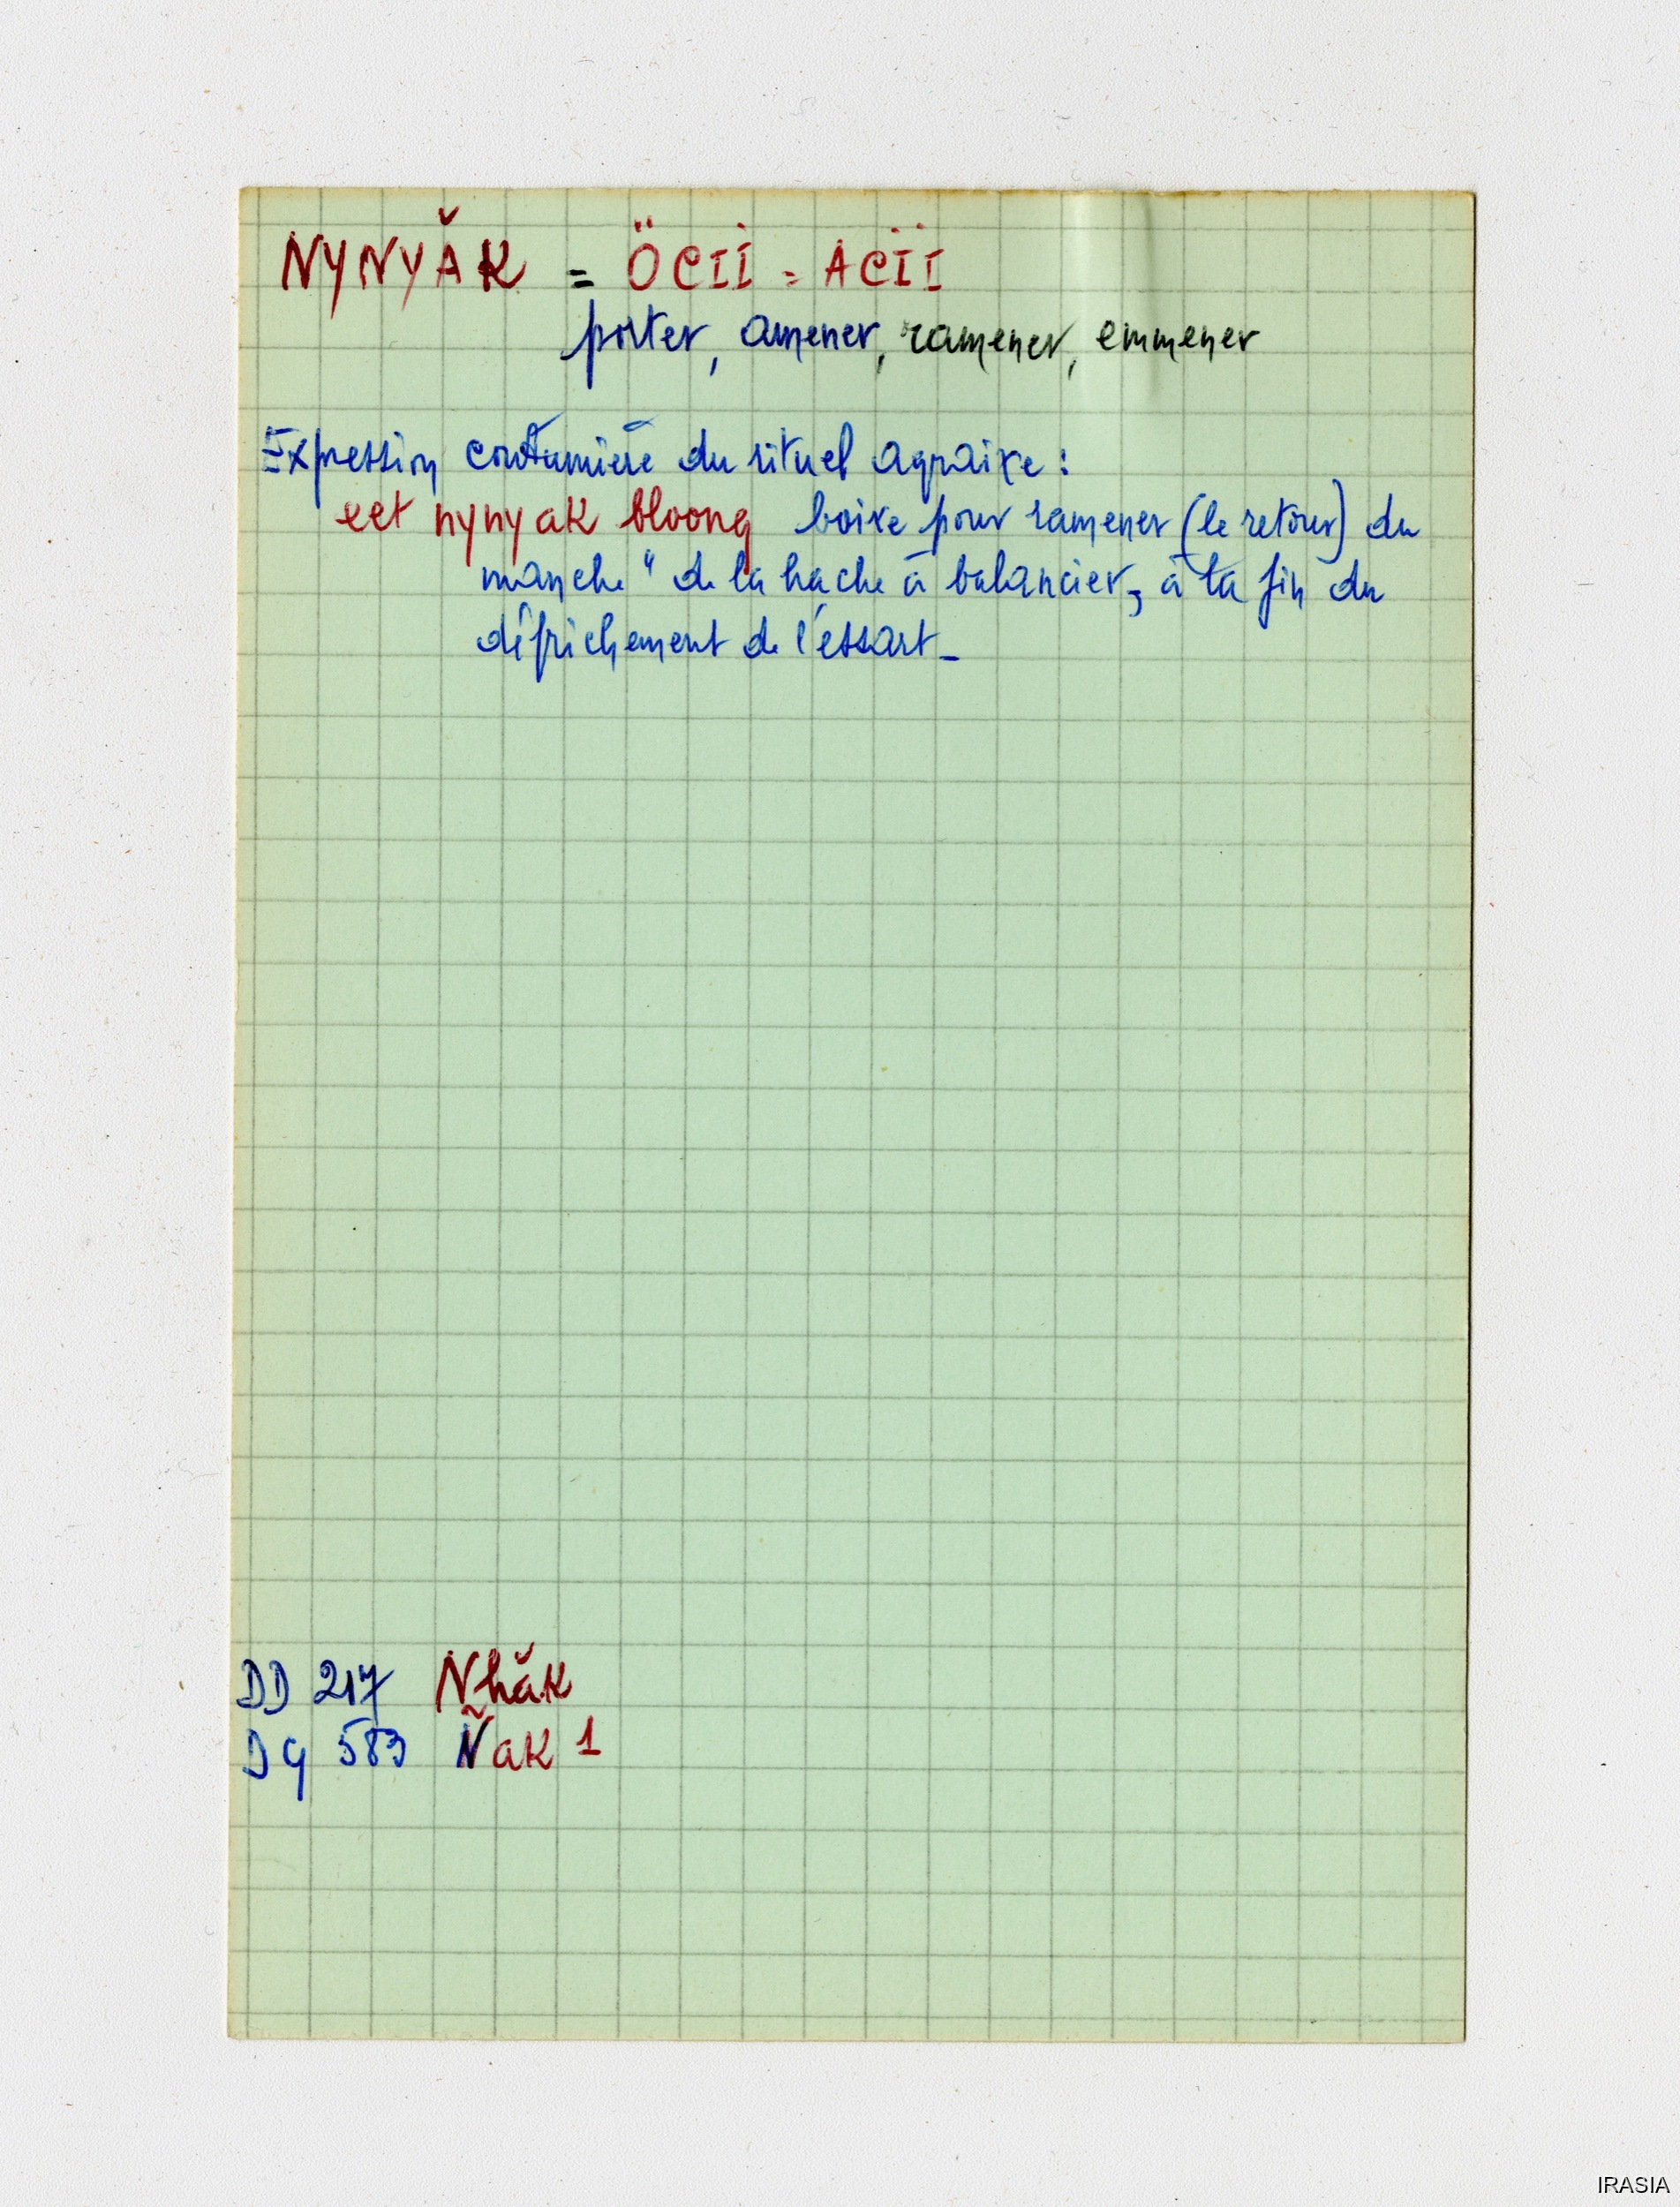 NYNYĂK = ÖCII = ACII
porter, amener, ramener, emmener
Expression coutumière du rituel agraire :
eet nynyak bloong boire pour ramener (le retour) du
manche " de la hache à balancier, à la fin du
défrichement de l'essart_
DD 217 Nhăk
DG 583 Ñak 1
IRASIA